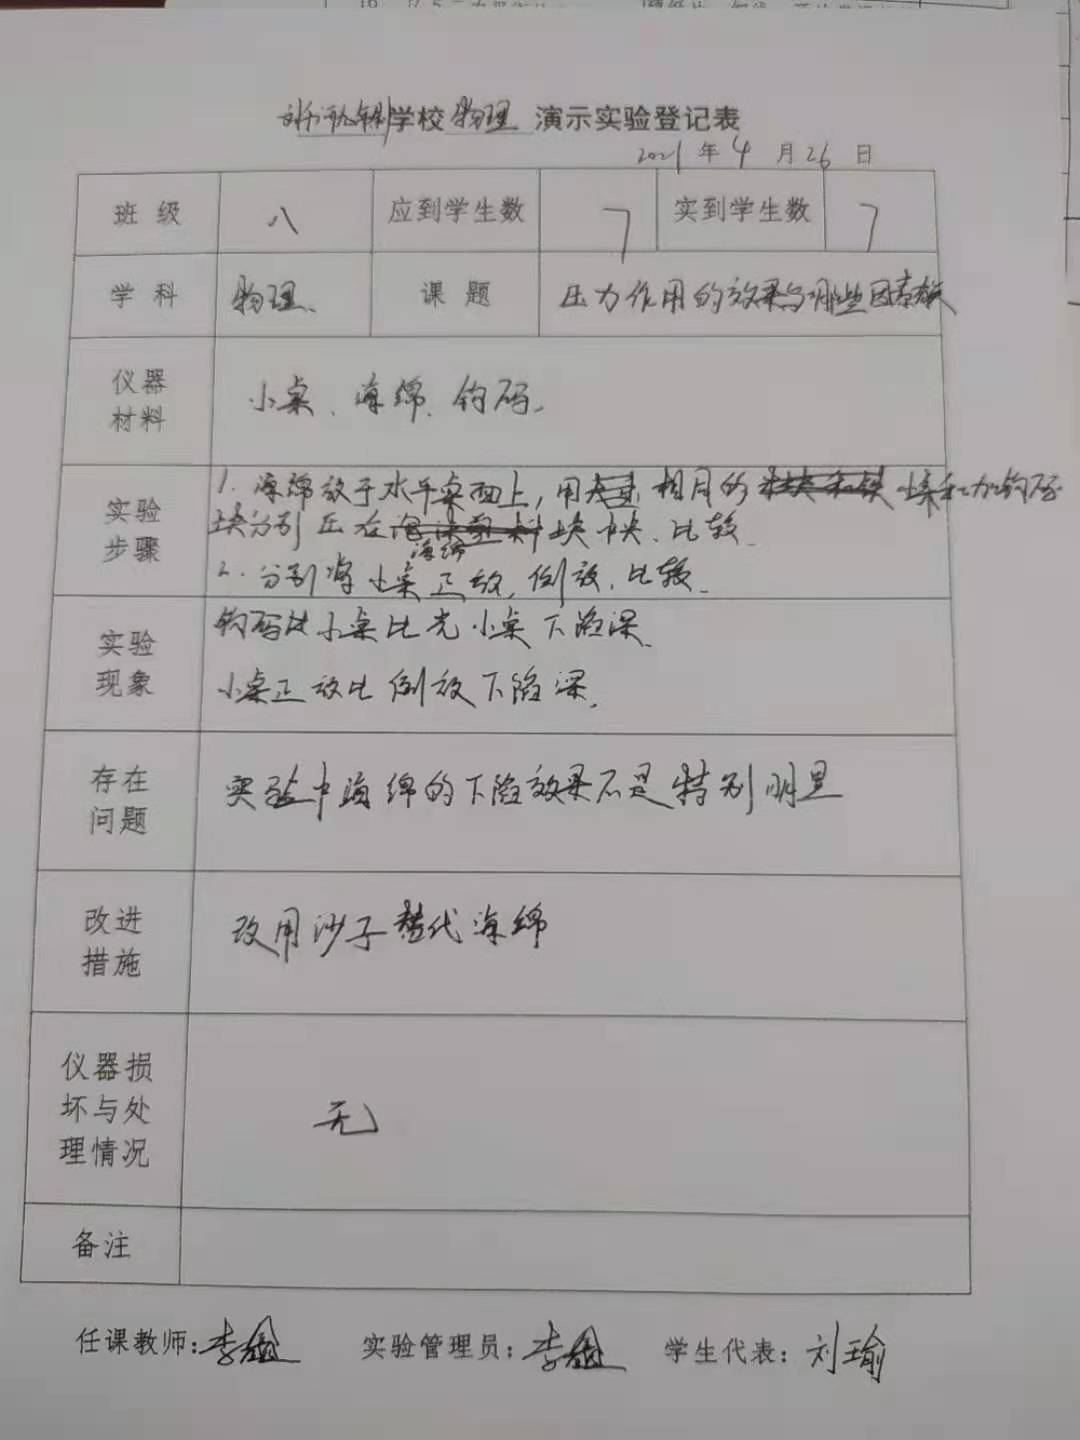 学校 物理 演示实验登记表
2021 年 4 月 26 日
班 级 八 应到学生数 7 实到学生数 7
学 科 物理、 课 题 压力作用的效果与哪些因素有关
仪器
材料
小桌、海绵、钩码。
实验
步骤
1. 海绵放于水平桌面上，用 相同的 小桌和加钩码
块分别压在 海绵 块 比较
2. 分别将小桌正放，倒放，比较。
实验
现象
钩码 小桌比光小桌下陷深、
小桌正放比倒放下陷深。
存在
问题
实验中海绵的下陷效果不是特别明显
改进
措施
改用沙子替代海绵
仪器损
坏与处
理情况
无
备注
任课教师: 李 实验管理员: 李 学生代表: 刘瑜